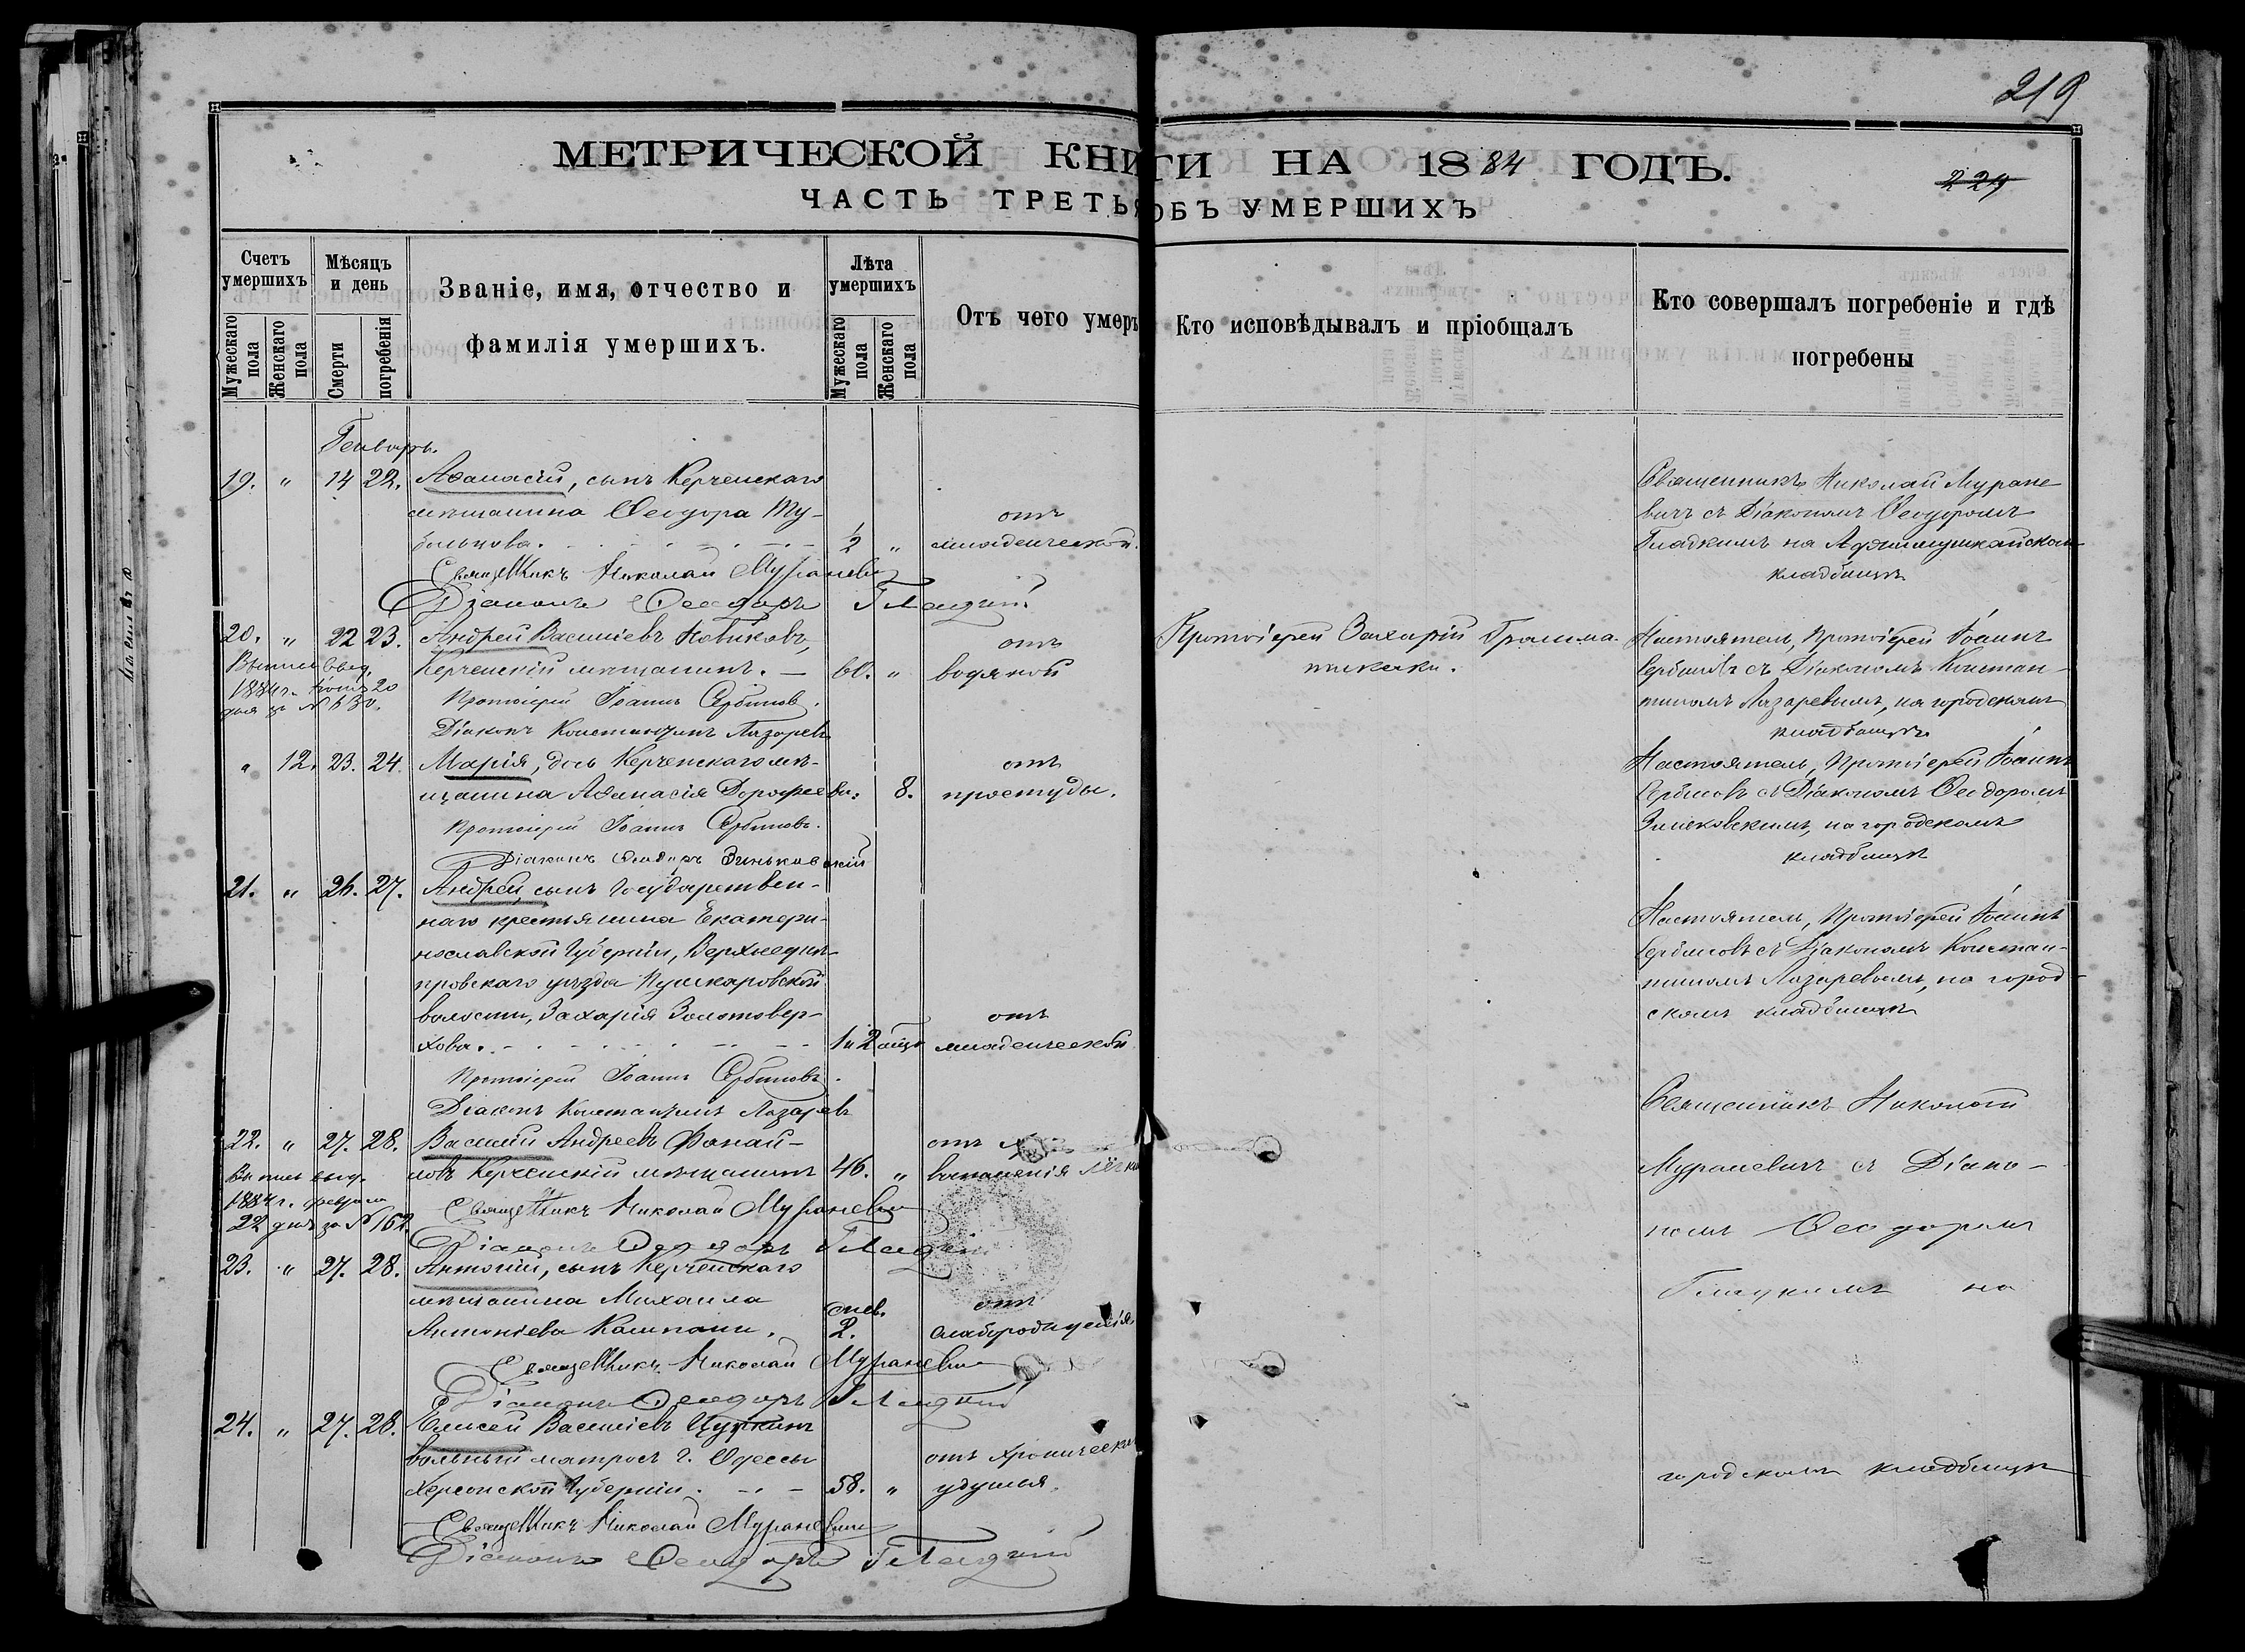 219
МЕТРИЧЕСКОЙ КНИГИ НА 1884 ГОДЪ.
229
ЧАСТЬ ТРЕТЬЯ ОБЪ УМЕРШИХЪ
Счетъ умершихъ
Мужескаго пола
Женскаго пола
Мѣсяцъ и день
Смерти
погребенія
Званіе, имя, отчество и
фамилія умершихъ.
Лѣта умершихъ
Мужескаго пола
Женскаго пола
Отъ чего умеръ
Кто исповѣдывалъ и пріобщалъ
Кто совершалъ погребеніе и гдѣ
погребены
Генварь.
19. " 14 22. Аѳанасій, сынъ Керченскаго
мѣщанина Ѳеодора
1/2 " отъ
младенческой.
Священникъ Николай Мураневичъ
Діаконъ Ѳеодоръ Гладкій
Священникъ Николай Муране-
вичъ съ Діакономъ Ѳеодоромъ
Гладкимъ на Аджимушкайскомъ
кладбищѣ
20. " 22 23. Андрей Васильевъ Новиковъ,
Керченскій мѣщанинъ. — 60. "
отъ
водяной
1884 г.
Протоіерей Іоаннъ Сербиновъ.
Діаконъ Константинъ Лазаревъ
Протоіерей Захарій Грамма-
тикаки.
Настоятель, Протоіерей Іоаннъ
Сербиновъ съ Діакономъ Констан-
тиномъ Лазаревымъ, на городскомъ
кладбищѣ
" 12. 23. 24. Марія, дочь Керченскаго мѣ-
щанина Аѳанасія Дорофеева. 8.
отъ
простуды.
Протоіерей Іоаннъ Сербиновъ.
Діаконъ Ѳеодоръ Зиньковскій
Настоятель, Протоіерей Іоаннъ
Сербиновъ съ Діакономъ Ѳеодоромъ
Зиньковскимъ, на городскомъ
кладбищѣ
21. " 26. 27. Андрей, сынъ Государствен-
наго крестьянина Екатери-
нославской Губерніи, Верхнеднѣ-
провскаго уѣзда Пушкаровской
волости, Захарія Золотовер-
хова.
отъ
младенческой
Протоіерей Іоаннъ Сербиновъ.
Діаконъ Константинъ Лазаревъ
Настоятель, Протоіерей Іоаннъ
Сербиновъ съ Діакономъ Констан-
тиномъ Лазаревымъ, на город-
скомъ кладбищѣ
22. " 27. 28. Василій Андреевъ
Керченскій мѣщанинъ 46. "
отъ
воспаленія лёгкихъ
1884 г. февраля
22 дня за № 162
Священникъ Николай Мураневичъ
Діаконъ Ѳеодоръ Гладкій
23. " 27. 28. Антоній, сынъ Керченскаго
мѣщанина Михаила
Антоніева
днев.
2.
отъ
слаборожденія
Священникъ Николай Мураневичъ
Діаконъ Ѳеодоръ Гладкій
24. " 27. 28. Елисей Васильевъ
вольный матросъ г. Одессы
Херсонской Губерніи. 58. "
отъ хронической
удушья.
Священникъ Николай Мураневичъ
Діаконъ Ѳеодоръ Гладкій
Священникъ Николай
Мураневичъ съ Діако-
номъ Ѳеодоромъ
Гладкимъ на
городскомъ кладбищѣ